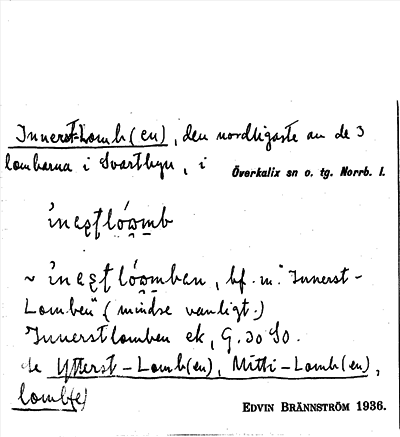 Innerst-Lomb(en), den nordligaste av de 3
lombarna i Svartbyn, i
Överkalix sn o. tg. Norrb. l.
~ , bf. m. "Innerst-
Lomben" (mindre vanligt.)
Innerstlomben ek, G. 30 SO.
Se Ytterst-Lomb(en), Mitti-Lomb(en),
lomb(e)
EDVIN BRÄNNSTRÖM 1936.